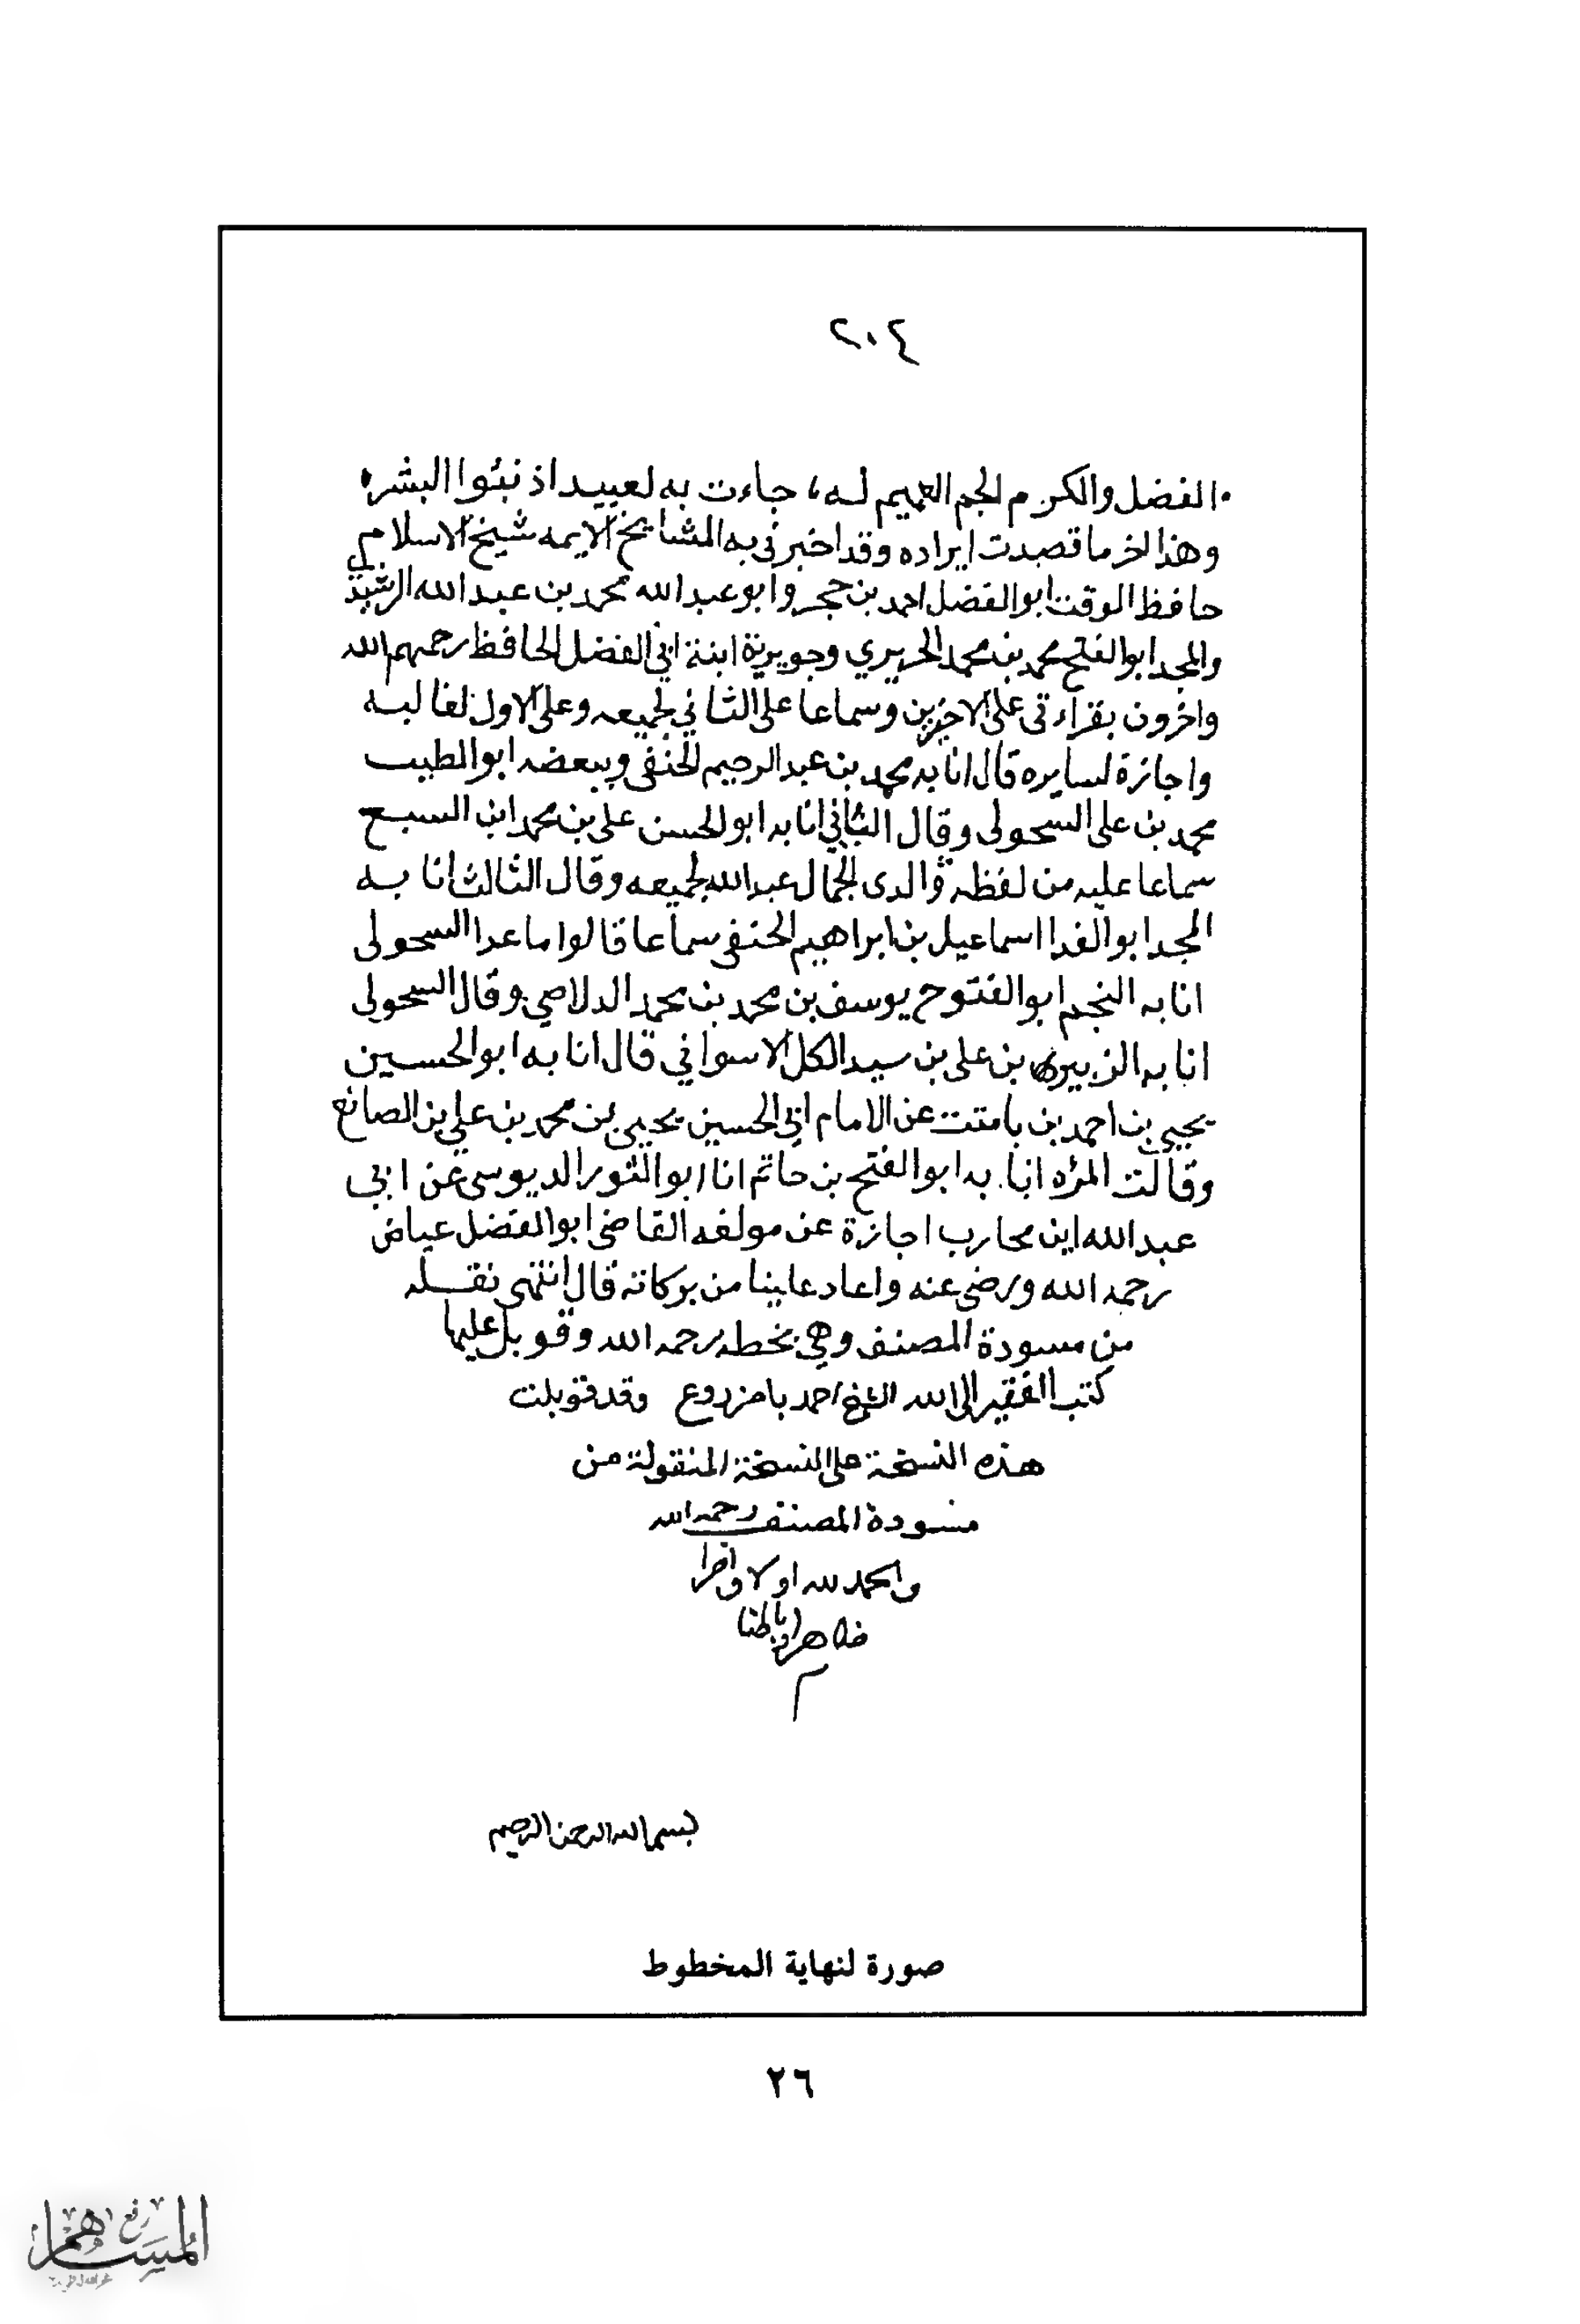 ٢٠٤
الفضل والكرم الجم العميم له، جاءت به لعبيد اذ نبئوا البشر
وهذا اخر ما قصدت ايراده وقد اخبرني به المشايخ الايمه شيخ الاسلام
حافظ الوقت ابو الفضل احمد بن حجر وابو عبد الله محمد بن عبد الله الرشيدي
والمجد ابو الفتح محمد بن محمد الحريري وجويرية ابنة ابي الفضل الحافظ رحمهم الله
واخرون بقراءتي على الاخيرين وسماعا على الثاني لجميعه وعلى الاول لغالبه
واجازة لسايره قال انا به محمد بن عبد الرحيم الحنفي وببعضه ابو الطيب
محمد بن على السحولى وقال الثاني انا به ابو الحسن على بن محمد ابن السبع
سماعا عليه من لفظ والدى الجمال عبد الله لجميعه وقال الثالث انا به
المجد ابو الفدا اسماعيل بن ابراهيم الحنفي سماعا قالوا ما عدا السحولى
انا به النجم ابو الفتوح يوسف بن محمد بن محمد الدلاصي وقال السحولي
انا به الزبير بن على بن سيد الكل الاسواني قال انا به ابو الحسين
يحيي بن احمد بن بامتت عن الامام ابي الحسين يحيى بن محمد بن علي بن الصانع
وقالت المرٔه انا به ابو الفتح بن حاتم انا ابو النور الدبوسى عن ابي
عبد الله ابن محارب اجازة عن مولفه القاضى ابو الفضل عياض
رحمه الله ورضى عنه واعاد علينا من بركاته قال انتهى نقله
من مسودة المصنف وهي بخطه رحمه الله وقوبل عليها
كتب الفقير الى الله الشيخ احمد بامزروع وقد قوبلت
هذه النسخة على النسخة المنقولة من
مسودة المصنف رحمه الله
والحمد لله اولا واخرا
ظاهرا وباطنا
م
بسم الله الرحمن الرحيم
صورة لنهاية المخطوط
٢٦
المساهم